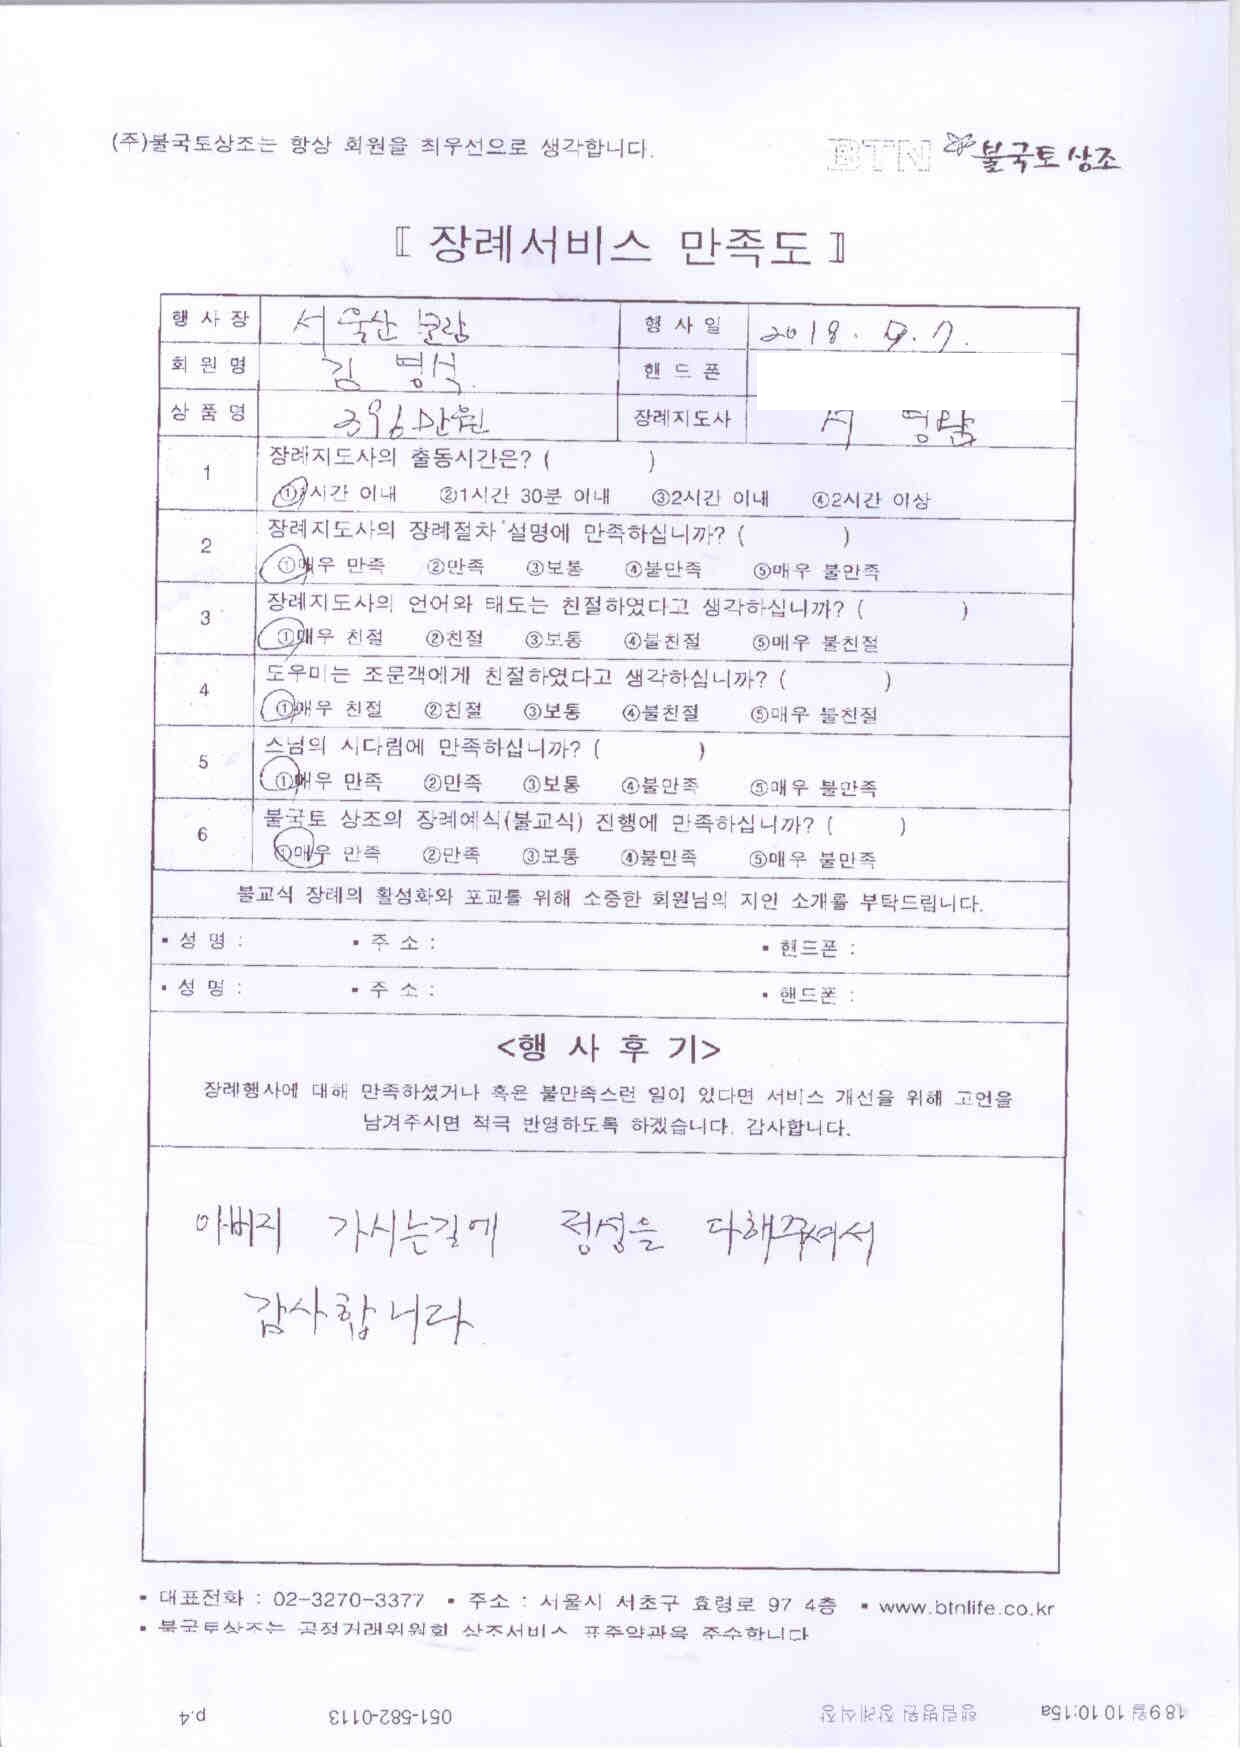 (주)불국토상조는 항상 회원을 최우선으로 생각합니다.
BTN 불국토상조
〖 장례서비스 만족도 〗
행 사 장 서울산 보람 행 사 일 2018. 9. 7.
회 원 명 김 명식 핸 드 폰
상 품 명 장례지도사 서
1 장례지도사의 출동시간은? ( )
①1시간 이내 ②1시간 30분 이내 ③2시간 이내 ④2시간 이상
2 장례지도사의 장례절차 설명에 만족하십니까? ( )
①매우 만족 ②만족 ③보통 ④불만족 ⑤매우 불만족
3 장례지도사의 언어와 태도는 친절하였다고 생각하십니까? ( )
①매우 친절 ②친절 ③보통 ④불친절 ⑤매우 불친절
4 도우미는 조문객에게 친절하였다고 생각하십니까? ( )
①매우 친절 ②친절 ③보통 ④불친절 ⑤매우 불친절
5 스님의 시다림에 만족하십니까? ( )
①매우 만족 ②만족 ③보통 ④불만족 ⑤매우 불만족
6 불국토 상조의 장례예식(불교식) 진행에 만족하십니까? ( )
①매우 만족 ②만족 ③보통 ④불만족 ⑤매우 불만족
불교식 장례의 활성화와 포교를 위해 소중한 회원님의 지인 소개를 부탁드립니다.
▪ 성 명 : ▪ 주 소 : ▪ 핸드폰 :
▪ 성 명 : ▪ 주 소 : ▪ 핸드폰 :
<행 사 후 기>
장례행사에 대해 만족하셨거나 혹은 불만족스런 일이 있다면 서비스 개선을 위해 고언을
남겨주시면 적극 반영하도록 하겠습니다. 감사합니다.
아버지 가시는길에 정성을 다해주셔서
감사합니다
▪ 대표전화 : 02-3270-3377 ▪ 주소 : 서울시 서초구 효령로 97 4층 ▪ www.btnlife.co.kr
▪ 불국토상조는 공정거래위원회 상조서비스 표준약관을 준수합니다
18 9월 10 10:15a 행림병원 장례식장 051-582-0113 p.4